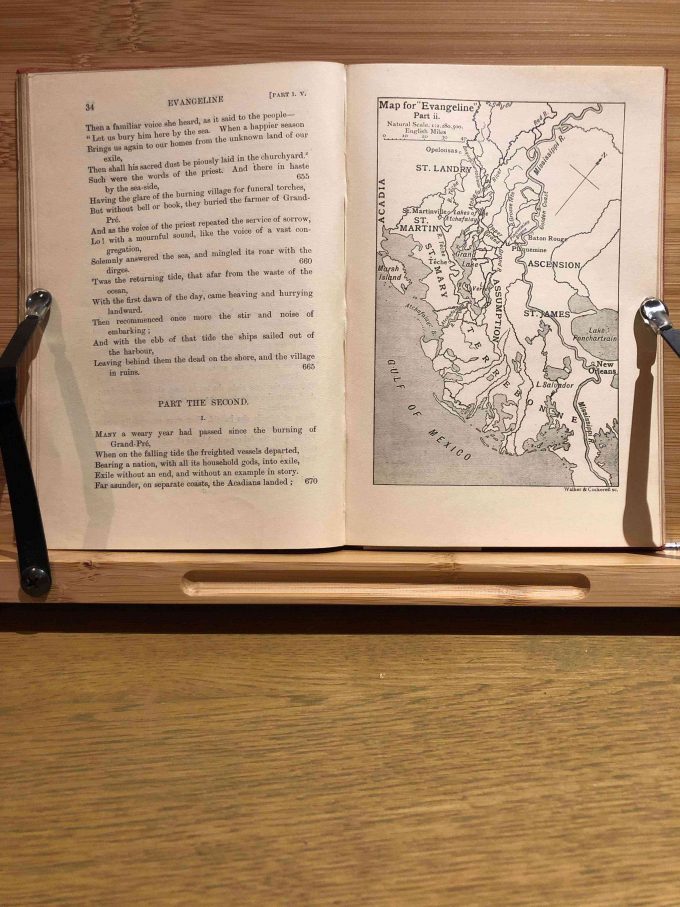 34 EVANGELINE [PART I. V.
Then a familiar voice she heard, as it said to the people—
"Let us bury him here by the sea. When a happier season
Brings us again to our homes from the unknown land of our
exile,
Then shall his sacred dust be piously laid in the churchyard."
Such were the words of the priest. And there in haste
by the sea-side, 655
Having the glare of the burning village for funeral torches,
But without bell or book, they buried the farmer of Grand-
Pré.
And as the voice of the priest repeated the service of sorrow,
Lo! with a mournful sound, like the voice of a vast con-
gregation,
Solemnly answered the sea, and mingled its roar with the
dirges. 660
'Twas the returning tide, that afar from the waste of the
ocean,
With the first dawn of the day, came heaving and hurrying
landward.
Then recommenced once more the stir and noise of
embarking;
And with the ebb of that tide the ships sailed out of
the harbour,
Leaving behind them the dead on the shore, and the village
in ruins. 665
PART THE SECOND.
I.
MANY a weary year had passed since the burning of
Grand-Pré,
When on the falling tide the freighted vessels departed,
Bearing a nation, with all its household gods, into exile,
Exile without an end, and without an example in story.
Far asunder, on separate coasts, the Acadians landed; 670
Map for "Evangeline"
Part ii.
Natural Scale,
English Miles
0 10 20 30 40
Red R.
Mississippi R.
N
Opelousas
ST. LANDRY
ACADIA
St. Martinville
Lakes of the
Atchafalaya
ST.
MARTIN
Golden Coast
Baton Rouge
Plaquemine
Grand
Lake
Teche
ST. MARY
Marsh
Island
ASCENSION
ASSUMPTION
ST. JAMES
Lake
Ponchartrain
Atchafalaya
TERREBONNE
New
Orleans
L. Salvador
Mississippi R.
GULF OF MEXICO
Walker & Cockerell sc.